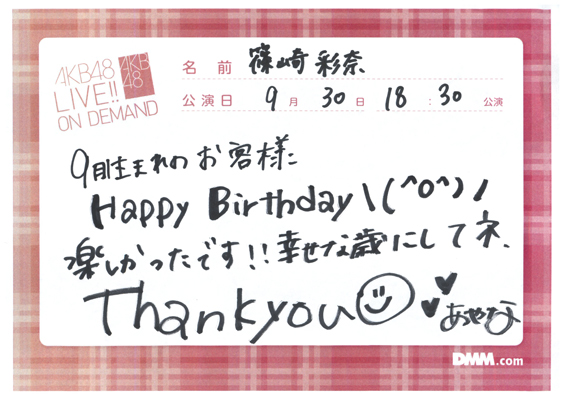 AKB48
LIVE!!
ON DEMAND
AKB
48
名前 篠崎 彩奈
公演日 9月30日 18:30 公演
9月生まれのお客様に
Happy Birthday\(^o^)/
楽しかったです!!幸せな歳にしてネ、
Thank you
あやな
DMM.com